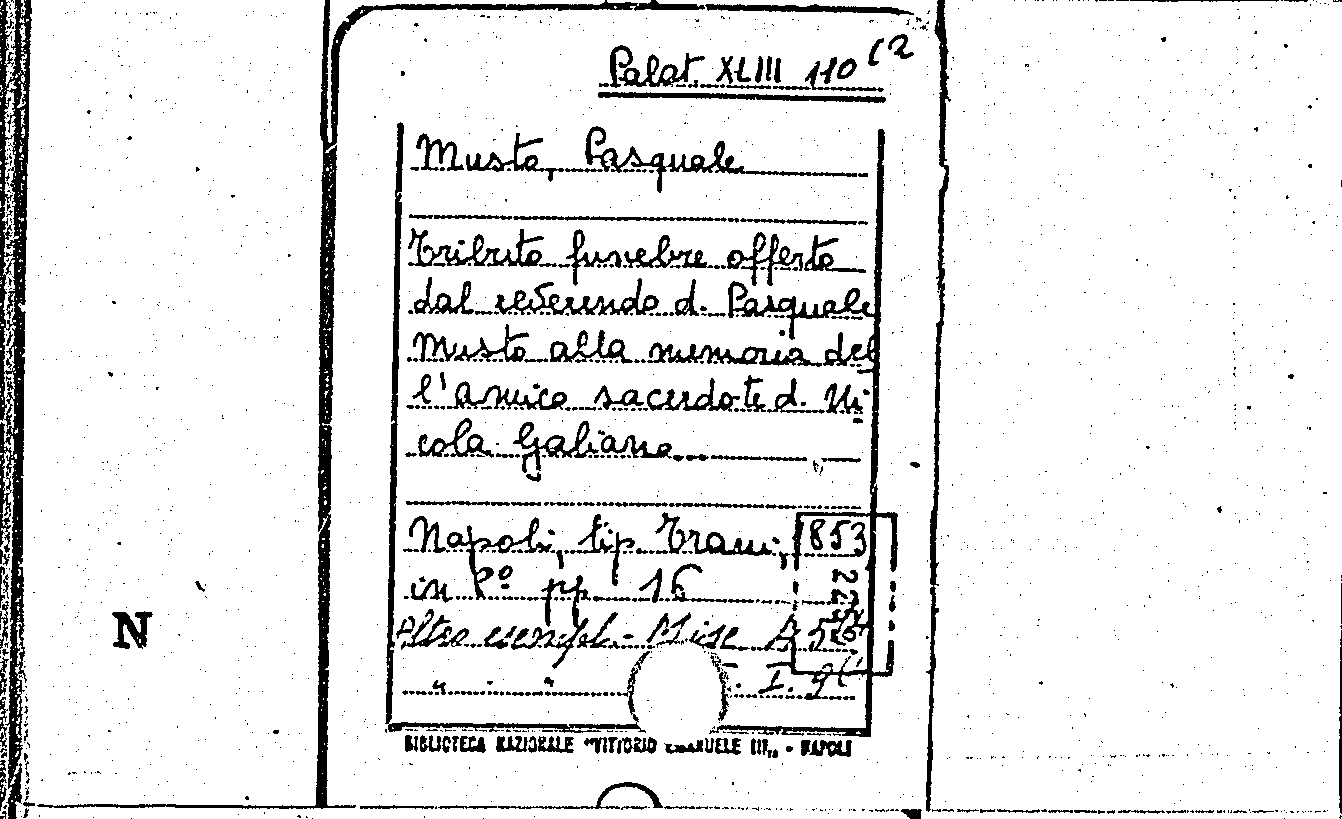 Palat. XLIII 110 (2
Musto, Pasquale
Tributo funebre offerto
dal reverendo d. Pasquale
Musto alla memoria del
l'amico sacerdote d. Ni-
cola Galiano...
Napoli, tip. Trani, 1853
in 8º pp. 16
Altro esempl. - Misc. A
" " " I. 9
N
BIBLIOTECA NAZIONALE "VITTORIO EMANUELE III" - NAPOLI